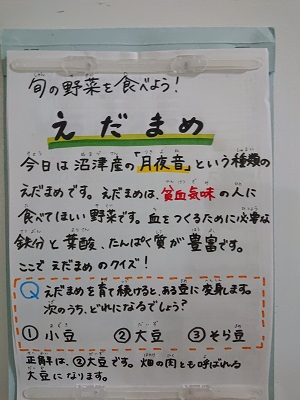 旬の野菜を食べよう!
えだまめ
今日は沼津産の「月夜音」という種類の
えだまめです。えだまめは、貧血気味の人に
食べてほしい野菜です。血をつくるために必要な
鉄分と葉酸、たんぱく質が豊富です。
ここでえだまめのクイズ!
Q えだまめを育て続けると、ある豆に変身します。
次のうち、どれになるでしょう?
① 小豆 ② 大豆 ③ そら豆
正解は、②大豆です。畑の肉とも呼ばれる
大豆になります。